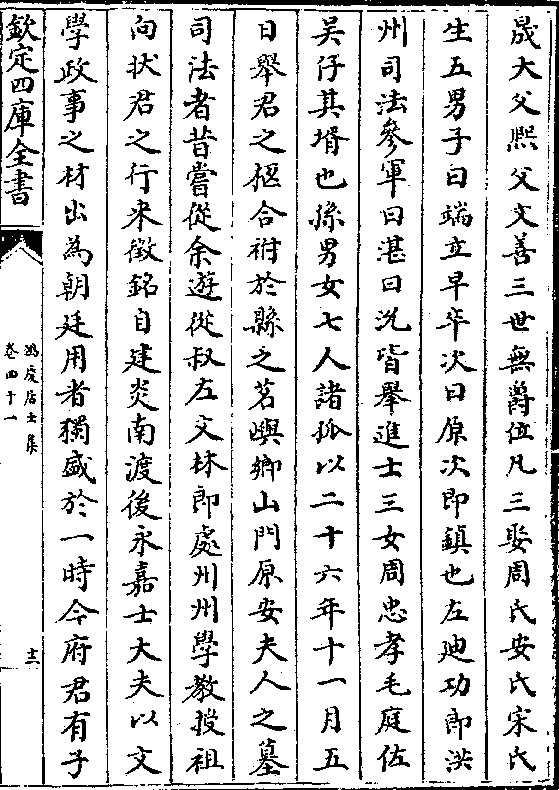 晟大父熙父文善三世無爵位凡三娶周氏安氏宋氏
生五男子曰端立早卒次曰原次即鎮也左廸功郎洪
州司法參軍曰湛曰況皆舉進士三女周忠孝毛庭佐
吴伃其壻也孫男女七人諸孤以二十六年十一月五
日舉君之柩合祔於縣之茗嶼鄉山門原安夫人之墓
司法者昔嘗從余遊從叔左文林郎處州州學教授祖
向狀君之行来徵銘自建炎南渡後永嘉士大夫以文
學政事之材出為朝廷用者獨盛於一時今府君有子
欽定四庫全書
鴻慶居士集
卷四十一
十三